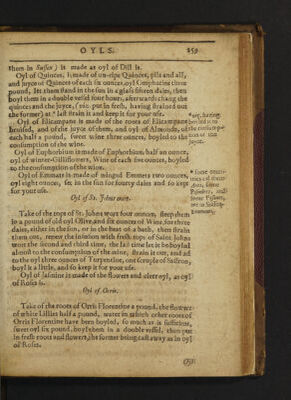 OYLS. 259
them in Sussex) is made as oyl of Dill is.
Oyl of Quinces. Is made of un-ripe Quinces, pils and all,
and juyce of Quinces of each six ounces, oyl Omphacine three
pound, let them stand in the sun in a glass fifteen daies, then
boyl them in a double vessel four hours, afterwards chang the
quinces and the juyce, (viz. put in fresh, having strained out
the former) at * last strain it and keep it for your use.
Oyl of Elicampane is made of the roots of Elicampane
bruised, and of the juyce of them, and oyl of Almonds, of
each half a pound, sweet wine three ounces, boyled to the
consumption of the wine.
Oyl of Euphorbium is made of Euphorbium, half an ounce,
oyl of winter-Gilliflowers, Wine of each five ounces, boyled
to the consumption of the wine.
Oyl of Emmats is made of winged Emmets two ounces,
oyl eight ounce, set in the sun for fourty daies and so kept
for your use.
Oyl of St. Johns wort.
Take of the tops of St. Johns wort four ounces, steep them
in a pound of old oyl Olive, and six ounces of Wine for three
daies, either in the sun, or in the heat of a bath, then strain
them out, renew the infusion with fresh tops of Saint Johns
wort the second and third time, the last time let it be boyled
almost to the consumption of the wine, strain it out, and ad
to the oyl three ounces of Turpentine, one scruple of Saffron,
boyl it a little, and so keep it for your use.
Oyl of Jasmine is made of the flowers and cleer oyl, as oyl
of Roses is.
Oyl of Orris.
Take of the roots of Orris Florentine a pound, the flowers
of white Lillies half a pound, water in which other roots of
Orris Florentine have been boyled, so much as is sufficient,
sweet oyl six pound, boyl them in a double vessel, then put
in fresh roots and flowers, the former being cast away as in oyl
of Roses.
* viz. having
boyled it to
the consumption
of the
juyce.
* some countries
call them
Ants, some
Pismires,
some Pissants,
we in Sussex,
Emmets.
Oyl